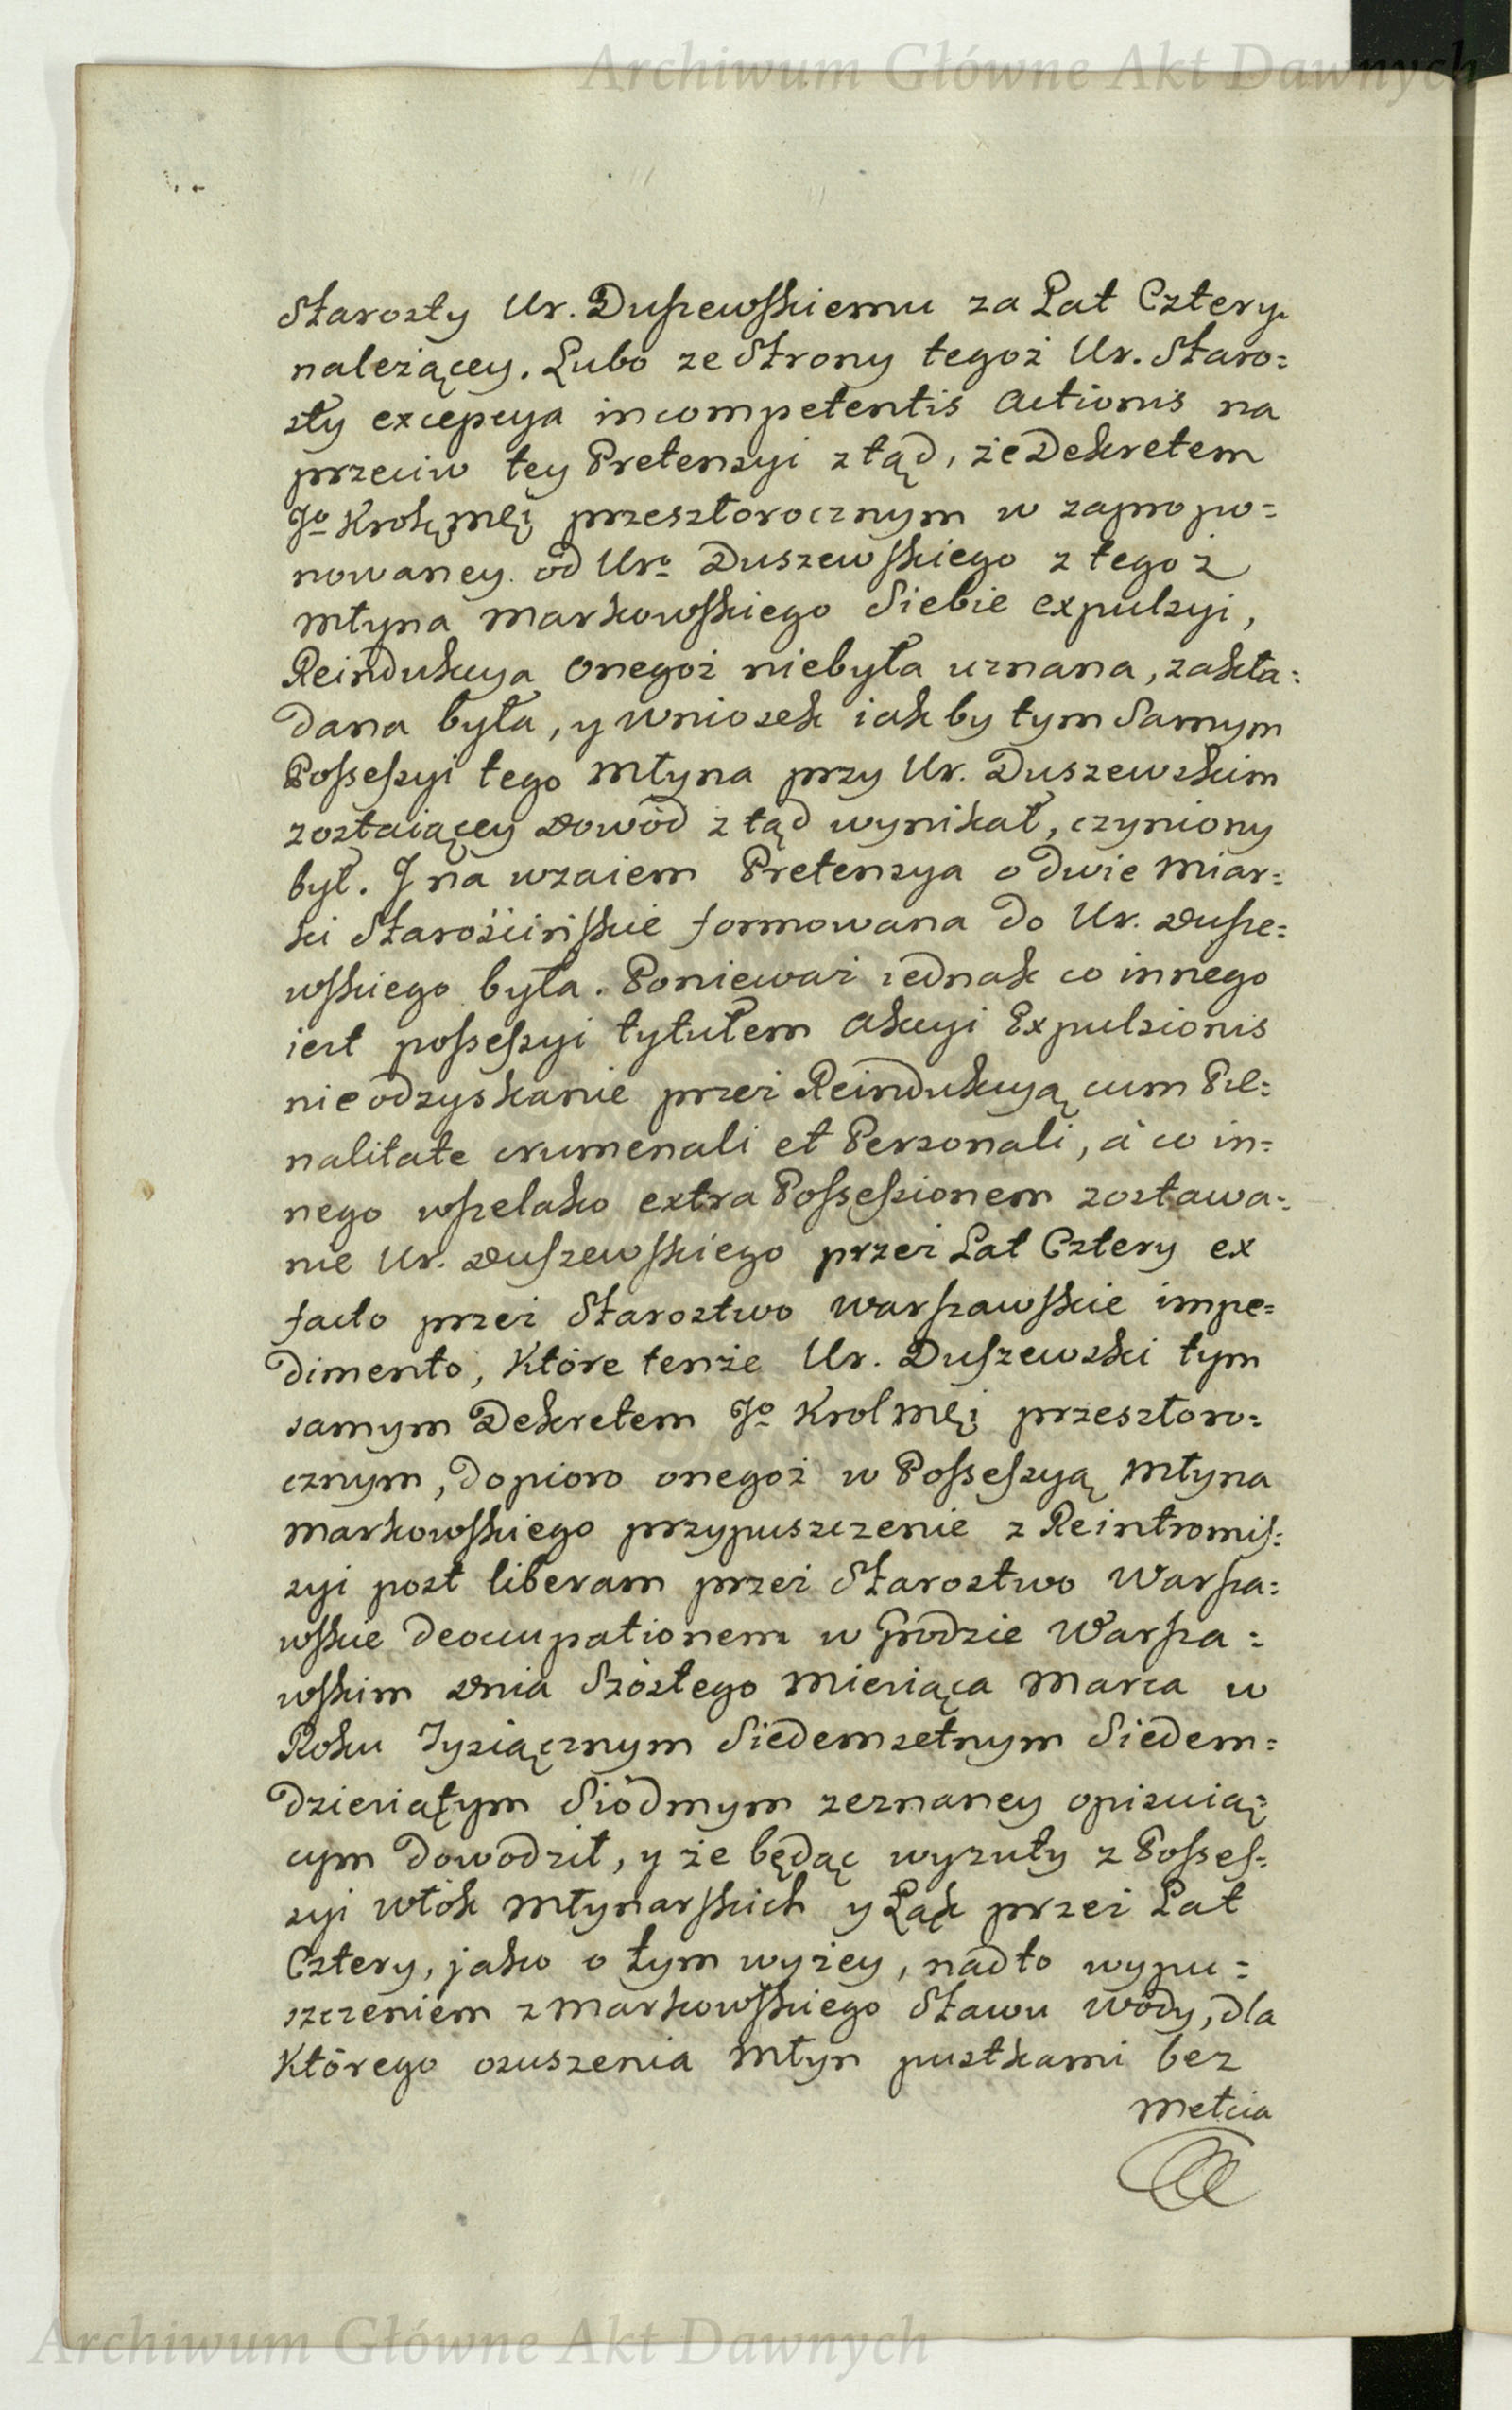 Archiwum Główne Akt Dawnych
Starosty Ur. Duszewskiemu za Lat Cztery
należącey. Lubo ze Strony tegoż Ur. Staro=
sty excepcya incompetentis Actionis na
przeciw tey Pretensyi ztąd, że Dekretem
Jo Krolę Mći przeszłorocznym w zapropo=
nowaney od Uro Duszewskiego z tegoż
Młyna Markowskiego Siebie expulsyi,
Reindukcya onegoż niebyła uznana, zakła=
dana była, y wniosek iakby tym Samym
Possessyi tego Młyna przy Ur. Duszewskim
zostaiącey dowód ztąd wynikał, czyniony
był. J na wzaiem Pretensya o dwie Miar=
ki Starościńskie formowana do Ur. Dusze=
wskiego była. Ponieważ iednak co innego
iest possessyi tytułem Akcyi Expulsionis
nieodzyskanie przez Reindukcyą cum Pæ=
nalitate crumenali et Personali, á co in=
nego wszelako extra Possessionem zostawa=
nie Ur. Duszewskiego przez Lat Cztery ex
facto przez Starostwo Warszawskie impe=
dimento, Które tenże Ur. Duszewski tym
samym Dekretem Jo Krol Mći przeszłoro=
cznym, dopioro onegoż w Possessyą Młyna
Markowskiego przypuszczenie z Reintromis=
syi post liberam przez Starostwo Warsza=
wskie deoccupationem w Grodzie Warsza=
wskim dnia Szóstego Miesiąca Marca w
Roku Tysiącznym Siedemsetnym Siedem=
dziesiątym Siódmym zeznaney opisuią=
cym dowodził, y że będąc wyzuty z Posses=
syi włók Młynarskich y Łąk przez Lat
Cztery, jako o tym wyżey, nadto wypu=
szczeniem z Markowskiego Stawu wody, dla
Którego osuszenia Młyn pustkami bez
Mełcia
Archiwum Główne Akt Dawnych